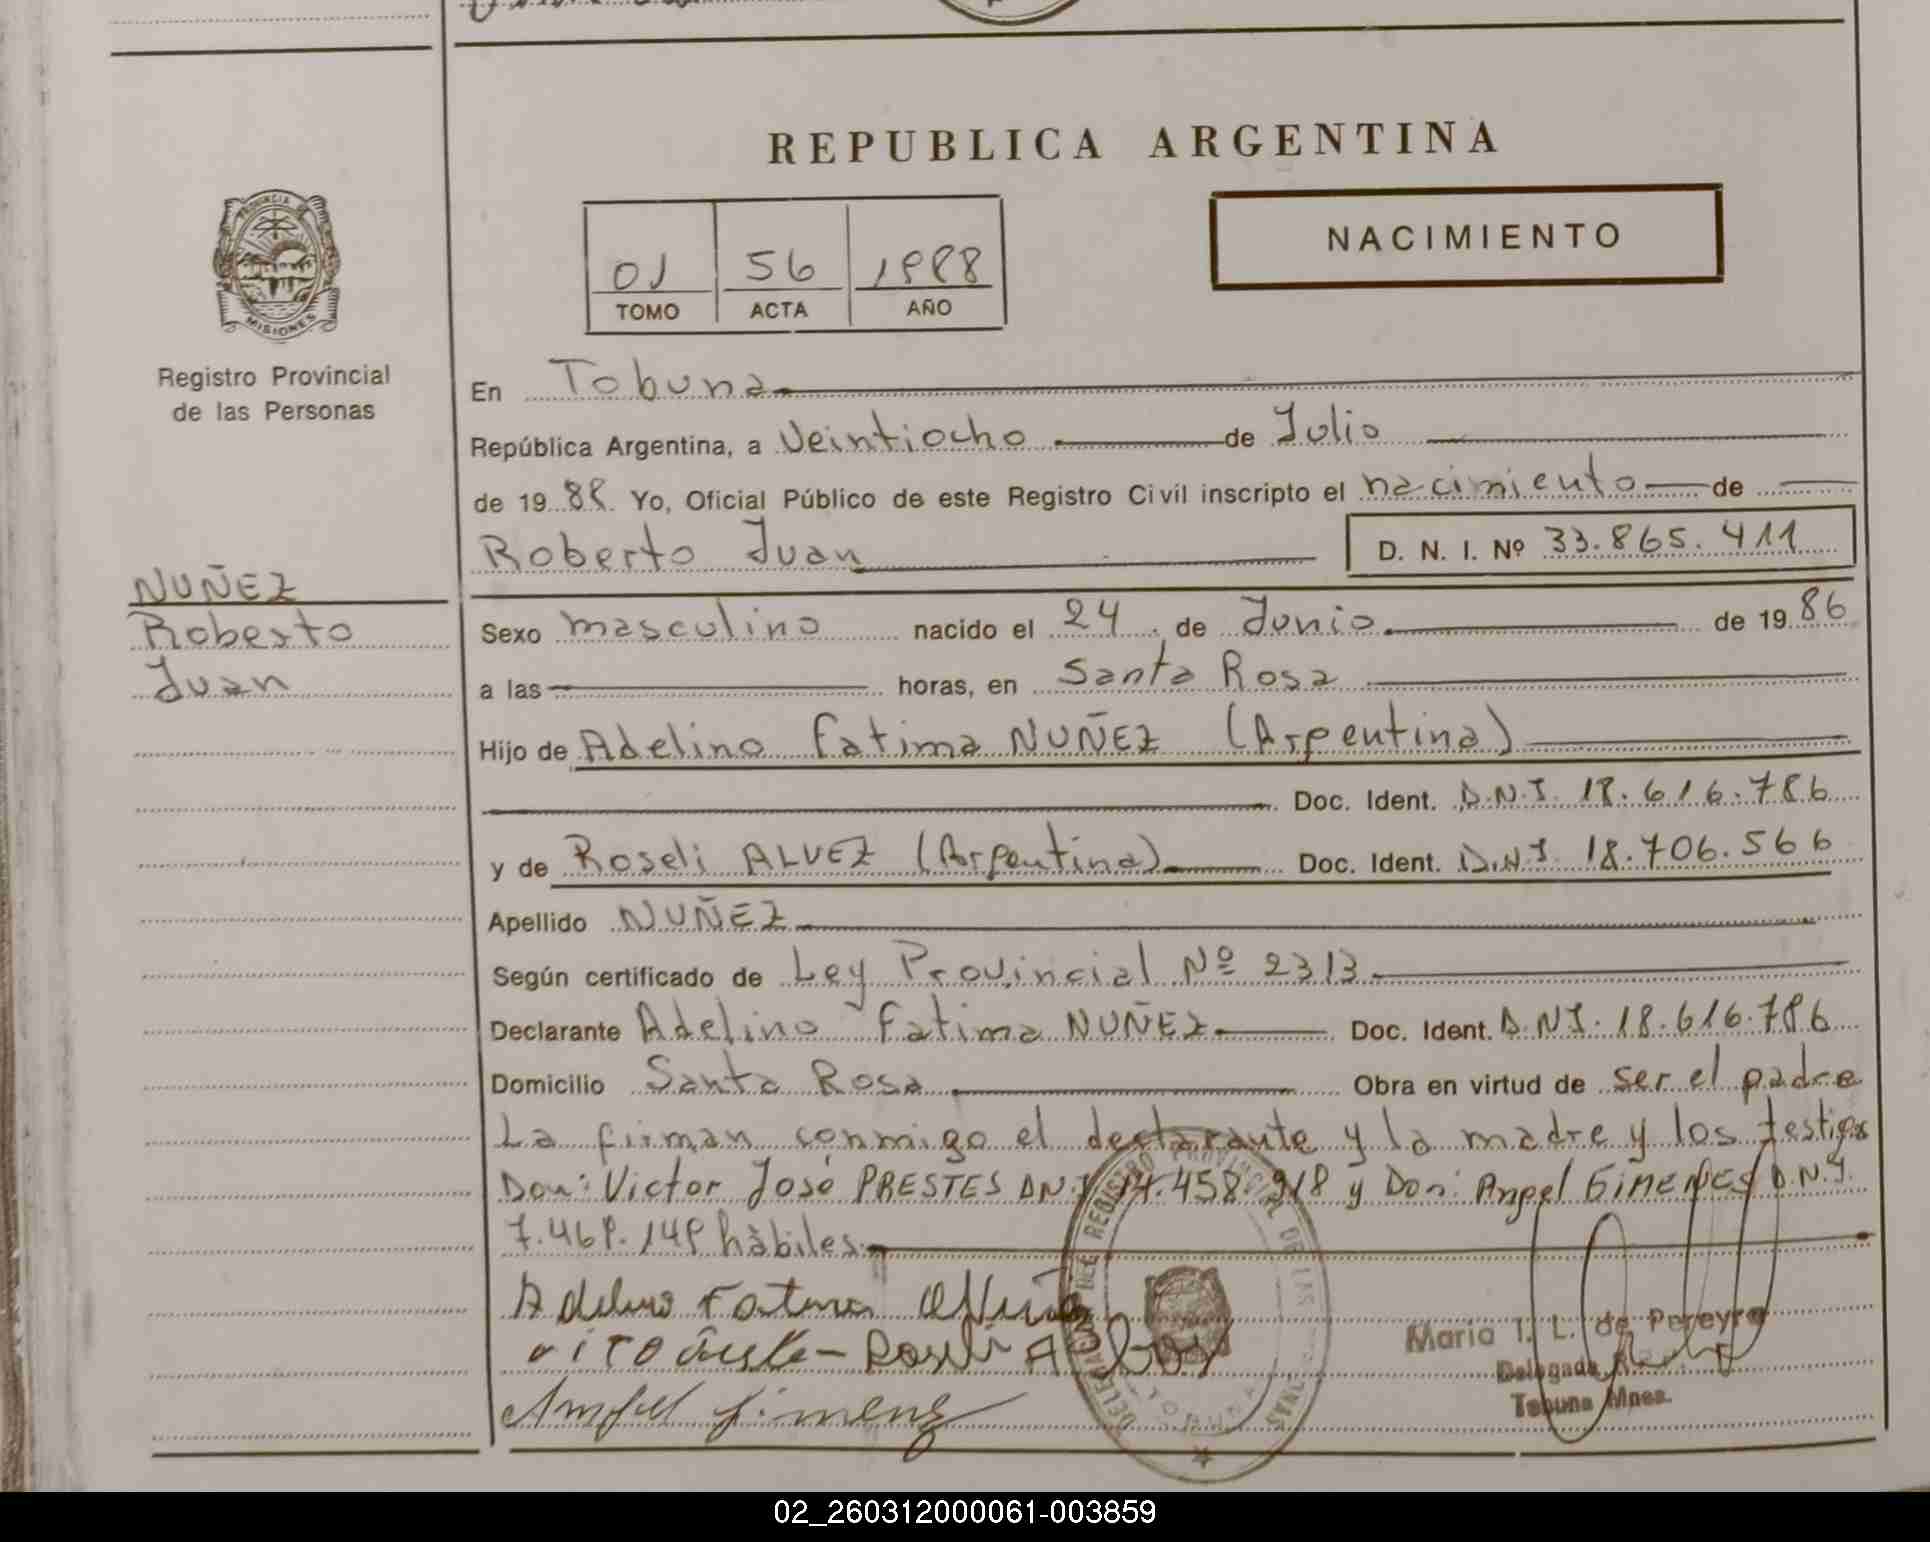 REPUBLICA ARGENTINA
NACIMIENTO
01 56 1988
TOMO ACTA AÑO
PROVINCIA DE
MISIONES
Registro Provincial
de las Personas
NUÑEZ
Roberto
Juan
En Tobuna
República Argentina, a Veintiocho de Julio
de 19 88 Yo, Oficial Público de este Registro Civil inscripto el nacimiento de
Roberto Juan D. N. I. Nº 33.865.411
Sexo masculino nacido el 24 de Junio de 19 86
a las horas, en Santa Rosa
Hijo de Adelino Fatima NUÑEZ (Argentina)
Doc. Ident. D.N.I. 18.616.786
y de Roseli ALVEZ (Argentina) Doc. Ident. D.N.I. 18.706.566
Apellido NUÑEZ
Según certificado de Ley Provincial Nº 2313
Declarante Adelino Fatima NUÑEZ Doc. Ident. D.N.I. 18.616.786
Domicilio Santa Rosa Obra en virtud de ser el padre
La firman conmigo el declarante y la madre y los testigos
Don: Victor José PRESTES DNI 14.458.918 y Don: Angel GIMENES D.N.I.
7.469.149 hábiles
Adelino Fatima
Roseli
Maria T. L. de Pereyra
Delegada
Tobuna Mnes.
DELEGACION DEL REGISTRO PROVINCIAL DE LAS PERSONAS
02_260312000061-003859